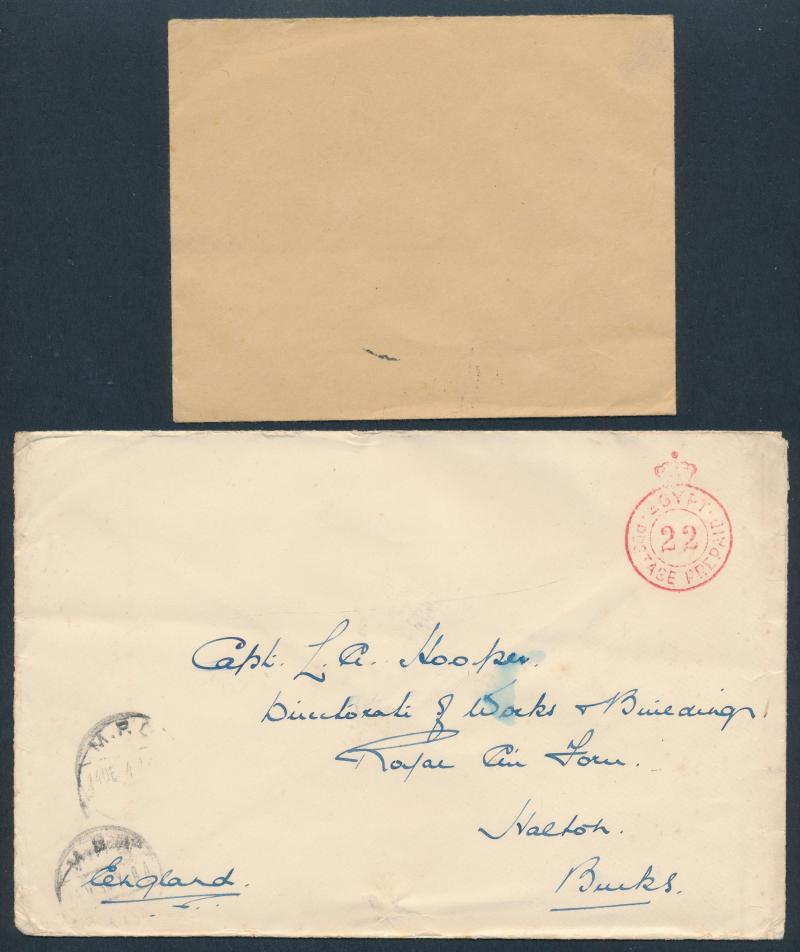 EGYPT
POSTAGE PREPAID
22
Capt. L. A. Hooper.
Directorate of Works & Buildings
Royal Air Force.
Halton.
England. Bucks.
M.P.O.